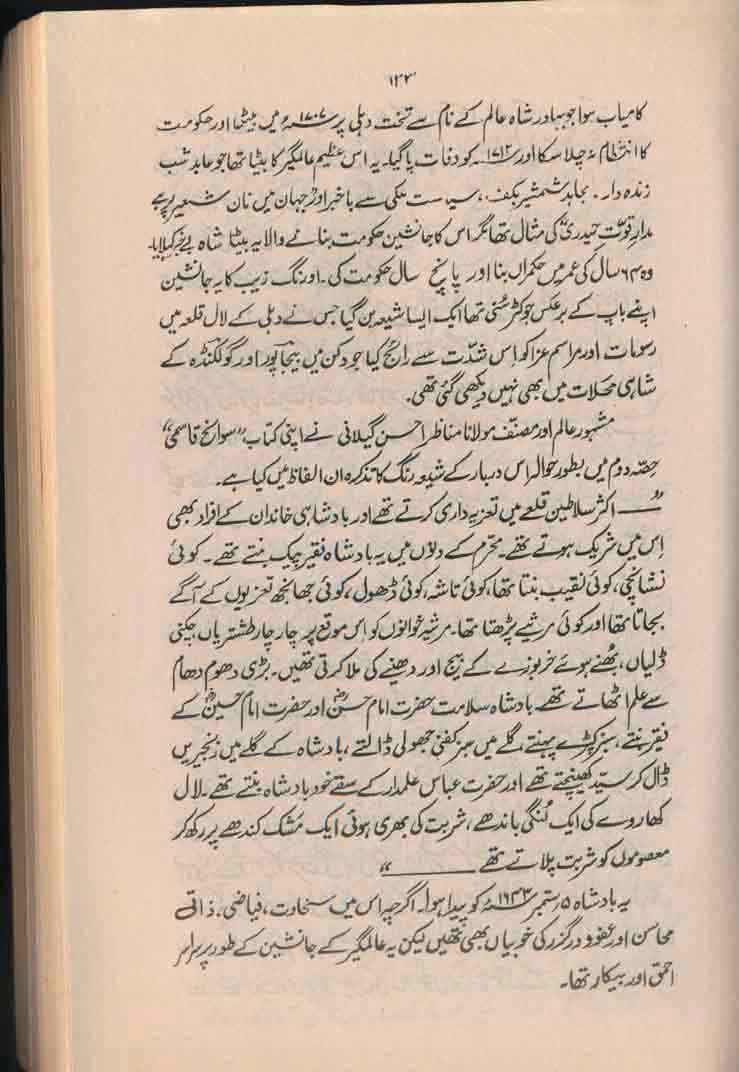 ۱۲۲
کامیاب ہوا جو بہادر شاہ عالم کے نام سے تخت دہلی پر ۱۷۰۷ء میں بیٹھا اور حکومت
کا انتظام نہ چلا سکا اور ۱۷۱۲ء کو وفات پا گیا۔ یہ اس عظیم عالمگیر کا بیٹا تھا جو عابد شب
زندہ دار۔ مجاہد شمشیر بکف، سیاست ملکی سے باخبر اور جہان میں نان شعیر پر ہے
مدار قوت حیدریؓ کی مثال تھا مگر اس کا جانشین حکومت بنانے والا یہ بیٹا شاہ بے خبر کہلایا۔
وہ ۶۴ سال کی عمر میں حکمراں بنا اور پانچ سال حکومت کی۔ اورنگ زیب کا یہ جانشین
اپنے باپ کے برعکس جو کٹر سُنی تھا ایک ایسا شیعہ بن گیا جس نے دہلی کے لال قلعہ میں
رسومات اور مراسم عزا کو اِس شدّت سے رائج کیا جو دکن میں بیجاپور اور گولکنڈہ کے
شاہی محلات میں بھی نہیں دیکھی گئی تھی۔
مشہور عالم اور مصنّف مولانا مناظر احسن گیلانی نے اپنی کتاب "سوانح قاسمی"
حِصّہ دوم میں بطور حوالہ اس دربار کے شیعہ رنگ کا تذکرہ ان الفاظ میں کیا ہے۔
"—— اکثر سلاطین قلعے میں تعزیہ داری کرتے تھے اور بادشاہی خاندان کے افراد بھی
اِس میں شریک ہوتے تھے۔ محرّم کے دنوں میں یہ بادشاہ فقیر پیک بنتے تھے۔ کوئی
نشانچی، کوئی نقیب بنتا تھا، کوئی تاشہ، کوئی ڈھول، کوئی جھانجھ تعزیوں کے آگے
بجاتا تھا اور کوئی مرثیے پڑھتا تھا۔ مرثیہ خوانوں کو اِس موقع پر چار چار طشتریاں چکنی
ڈلیاں، بُھنے ہوئے خربوزے کے بیج اور دھنیے کی ملا کرتی تھیں۔ بڑی دھوم دھام
سے علم اٹھاتے تھے۔ بادشاہ سلامت حضرت امام حسنؓ اور حضرت امام حسینؓ کے
فقیر بنتے، سبز کپڑے پہنتے، گلے میں سبز کفنی جھولی ڈالتے، بادشاہ کے گلے میں زنجیریں
ڈال کر سیّد کھینچتے تھے اور حضرت عباس علمدار کے سقے خود بادشاہ بنتے تھے۔ لال
کھاروے کی ایک لُنگی باندھے، شربت کی بھری ہوئی ایک مَشک کندھے پر رکھ کر
معصوموں کو شربت پلاتے تھے ——————"
یہ بادشاہ ۵ ستمبر ۱۶۴۳ء کو پیدا ہوا۔ اگرچہ اس میں سخاوت، فیاضی، ذاتی
محاسن اور عفو و درگزر کی خوبیاں بھی تھیں لیکن یہ عالمگیر کے جانشین کے طور پر سراسر
احمق اور بیکار تھا۔